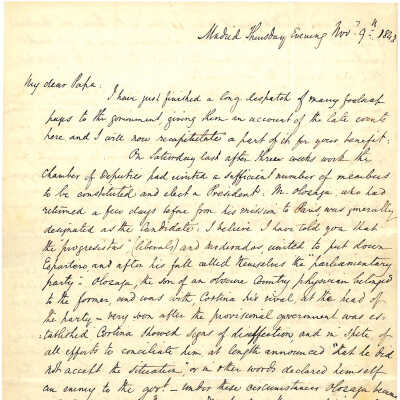 Madrid Thursday Evening Nov.r 9th 1843
My dear Papa:
I have just finished a long despatch of many foolscap
pages to the government giving them an account of the late events
here and I will now recapitulate a part of it for your benefit:
On Saturday last after three weeks work the
Chamber of Deputies had united a sufficient number of members
to be constituted and elect a President. M. Olozaga who had
returned a few days before from his mission to Paris was generally
designated as the candidate: I believe I have told you that
the progresistas (liberals) and moderados, united to put down
Espartero and after his fall called themselves the "parliamentary
party": Olozaga, the son of an obscure Country physician belonged
to the former, and was with, Cortina his rival, at the head of
the party — Very soon after the provisional government was es-
tablished Cortina showed signs of disaffection, and in spite of
all efforts to conciliate him, at length announced "that he did
not accept the situation," or in other words declared himself
an enemy to the govt. — Under these circumstances Olozaga became